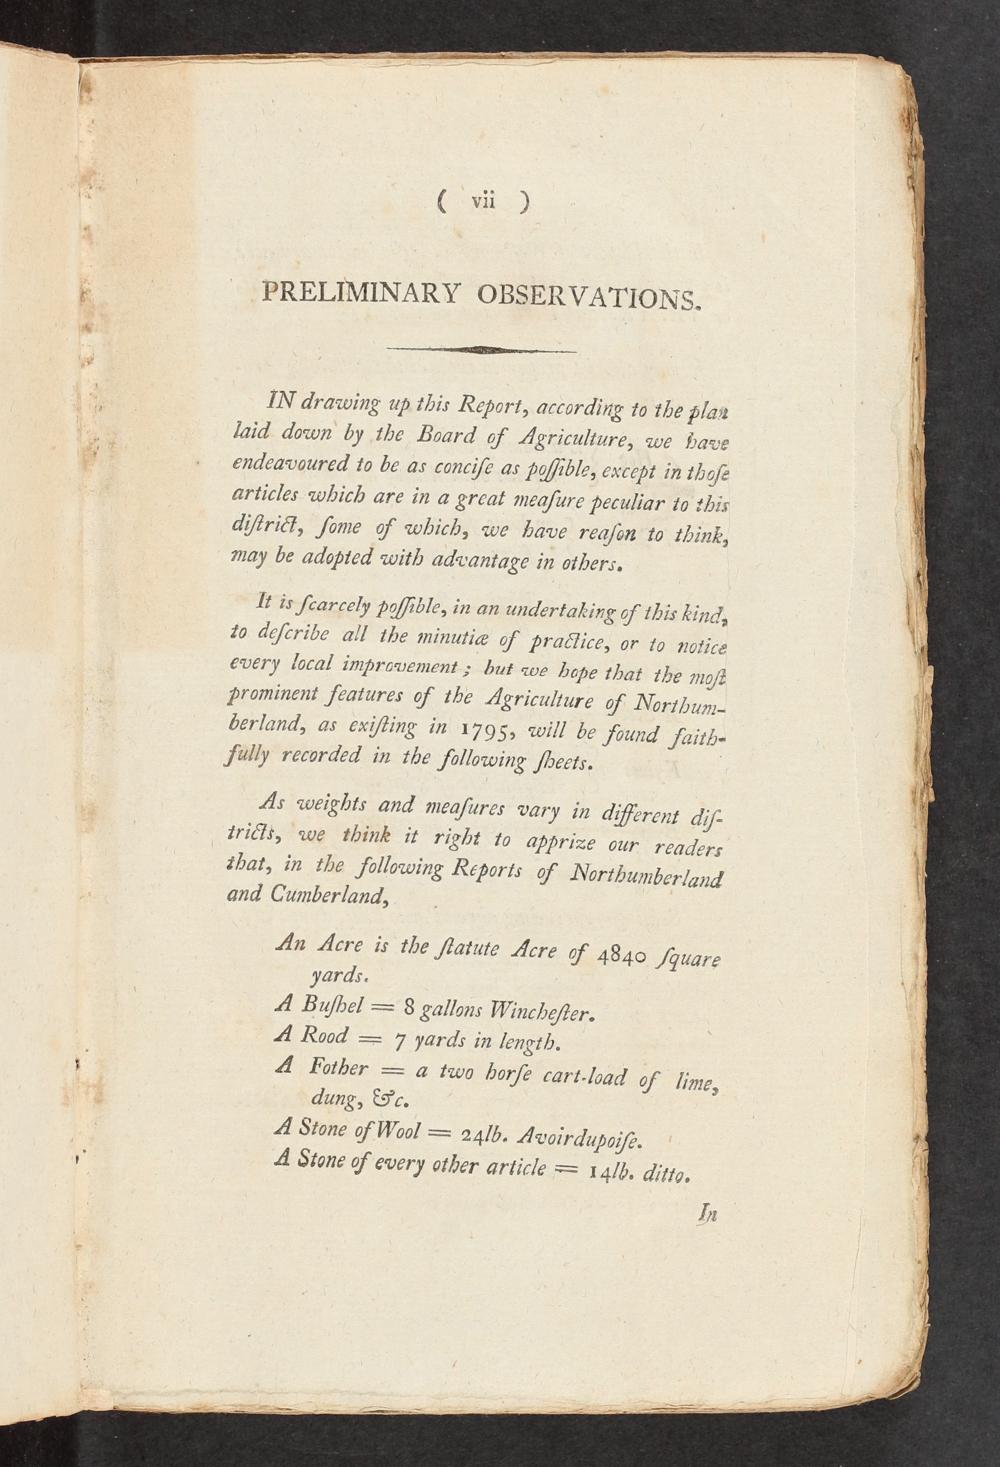 ( vii )
PRELIMINARY OBSERVATIONS.
IN drawing up this Report, according to the plan
laid down by the Board of Agriculture, we have
endeavoured to be as conciſe as poſſible, except in thoſe
articles which are in a great meaſure peculiar to this
diſtrict, ſome of which, we have reaſon to think,
may be adopted with advantage in others.
It is ſcarcely poſſible, in an undertaking of this kind,
to deſcribe all the minutiæ of practice, or to notice
every local improvement; but we hope that the moſt
prominent features of the Agriculture of Northum-
berland, as exiſting in 1795, will be found faith-
fully recorded in the following ſheets.
As weights and meaſures vary in different diſ-
tricts, we think it right to apprize our readers
that, in the following Reports of Northumberland
and Cumberland,
An Acre is the ſtatute Acre of 4840 ſquare
yards.
A Buſhel = 8 gallons Wincheſter.
A Rood = 7 yards in length.
A Fother = a two horſe cart-load of lime,
dung, &c.
A Stone of Wool = 24lb. Avoirdupoiſe.
A Stone of every other article = 14lb. ditto.
In